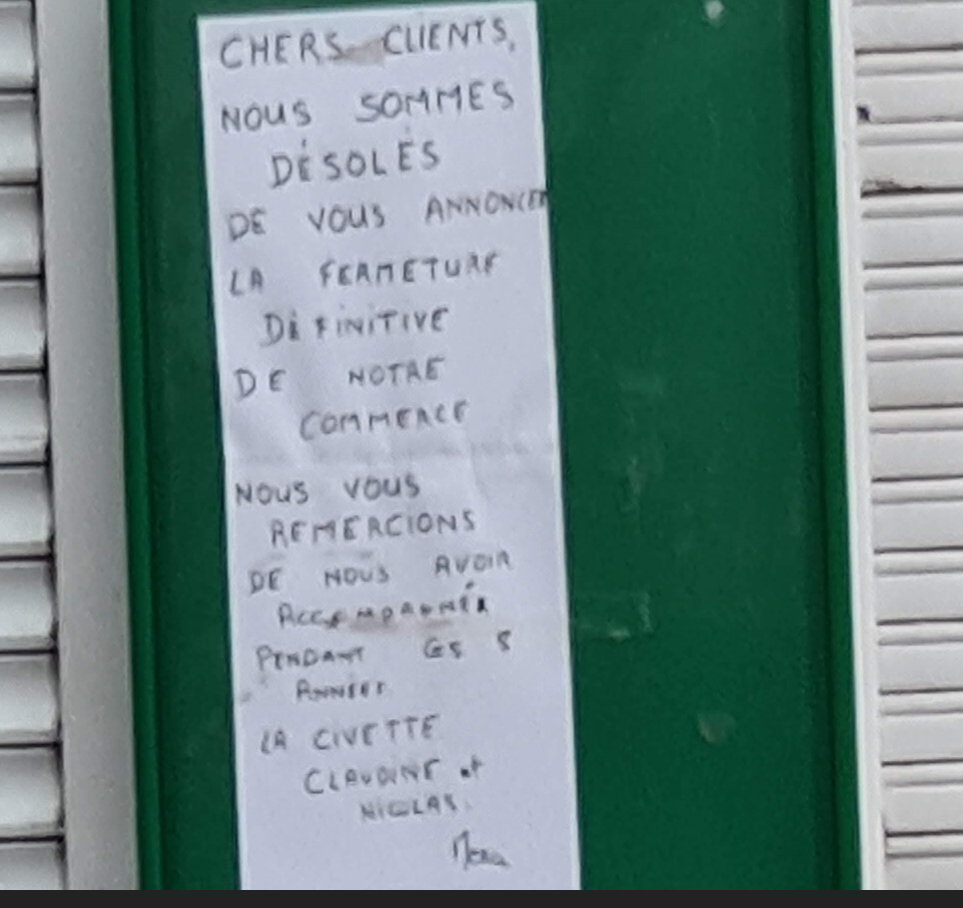 CHERS CLIENTS,
NOUS SOMMES
DÉSOLÉS
DE VOUS ANNONCER
LA FERMETURE
DÉFINITIVE
DE NOTRE
COMMERCE
NOUS VOUS
REMERCIONS
DE NOUS AVOIR
ACCOMPAGNÉR
PENDANT CES 5
ANNÉES
LA CIVETTE
CLAUDINE et
NICOLAS.
Merci